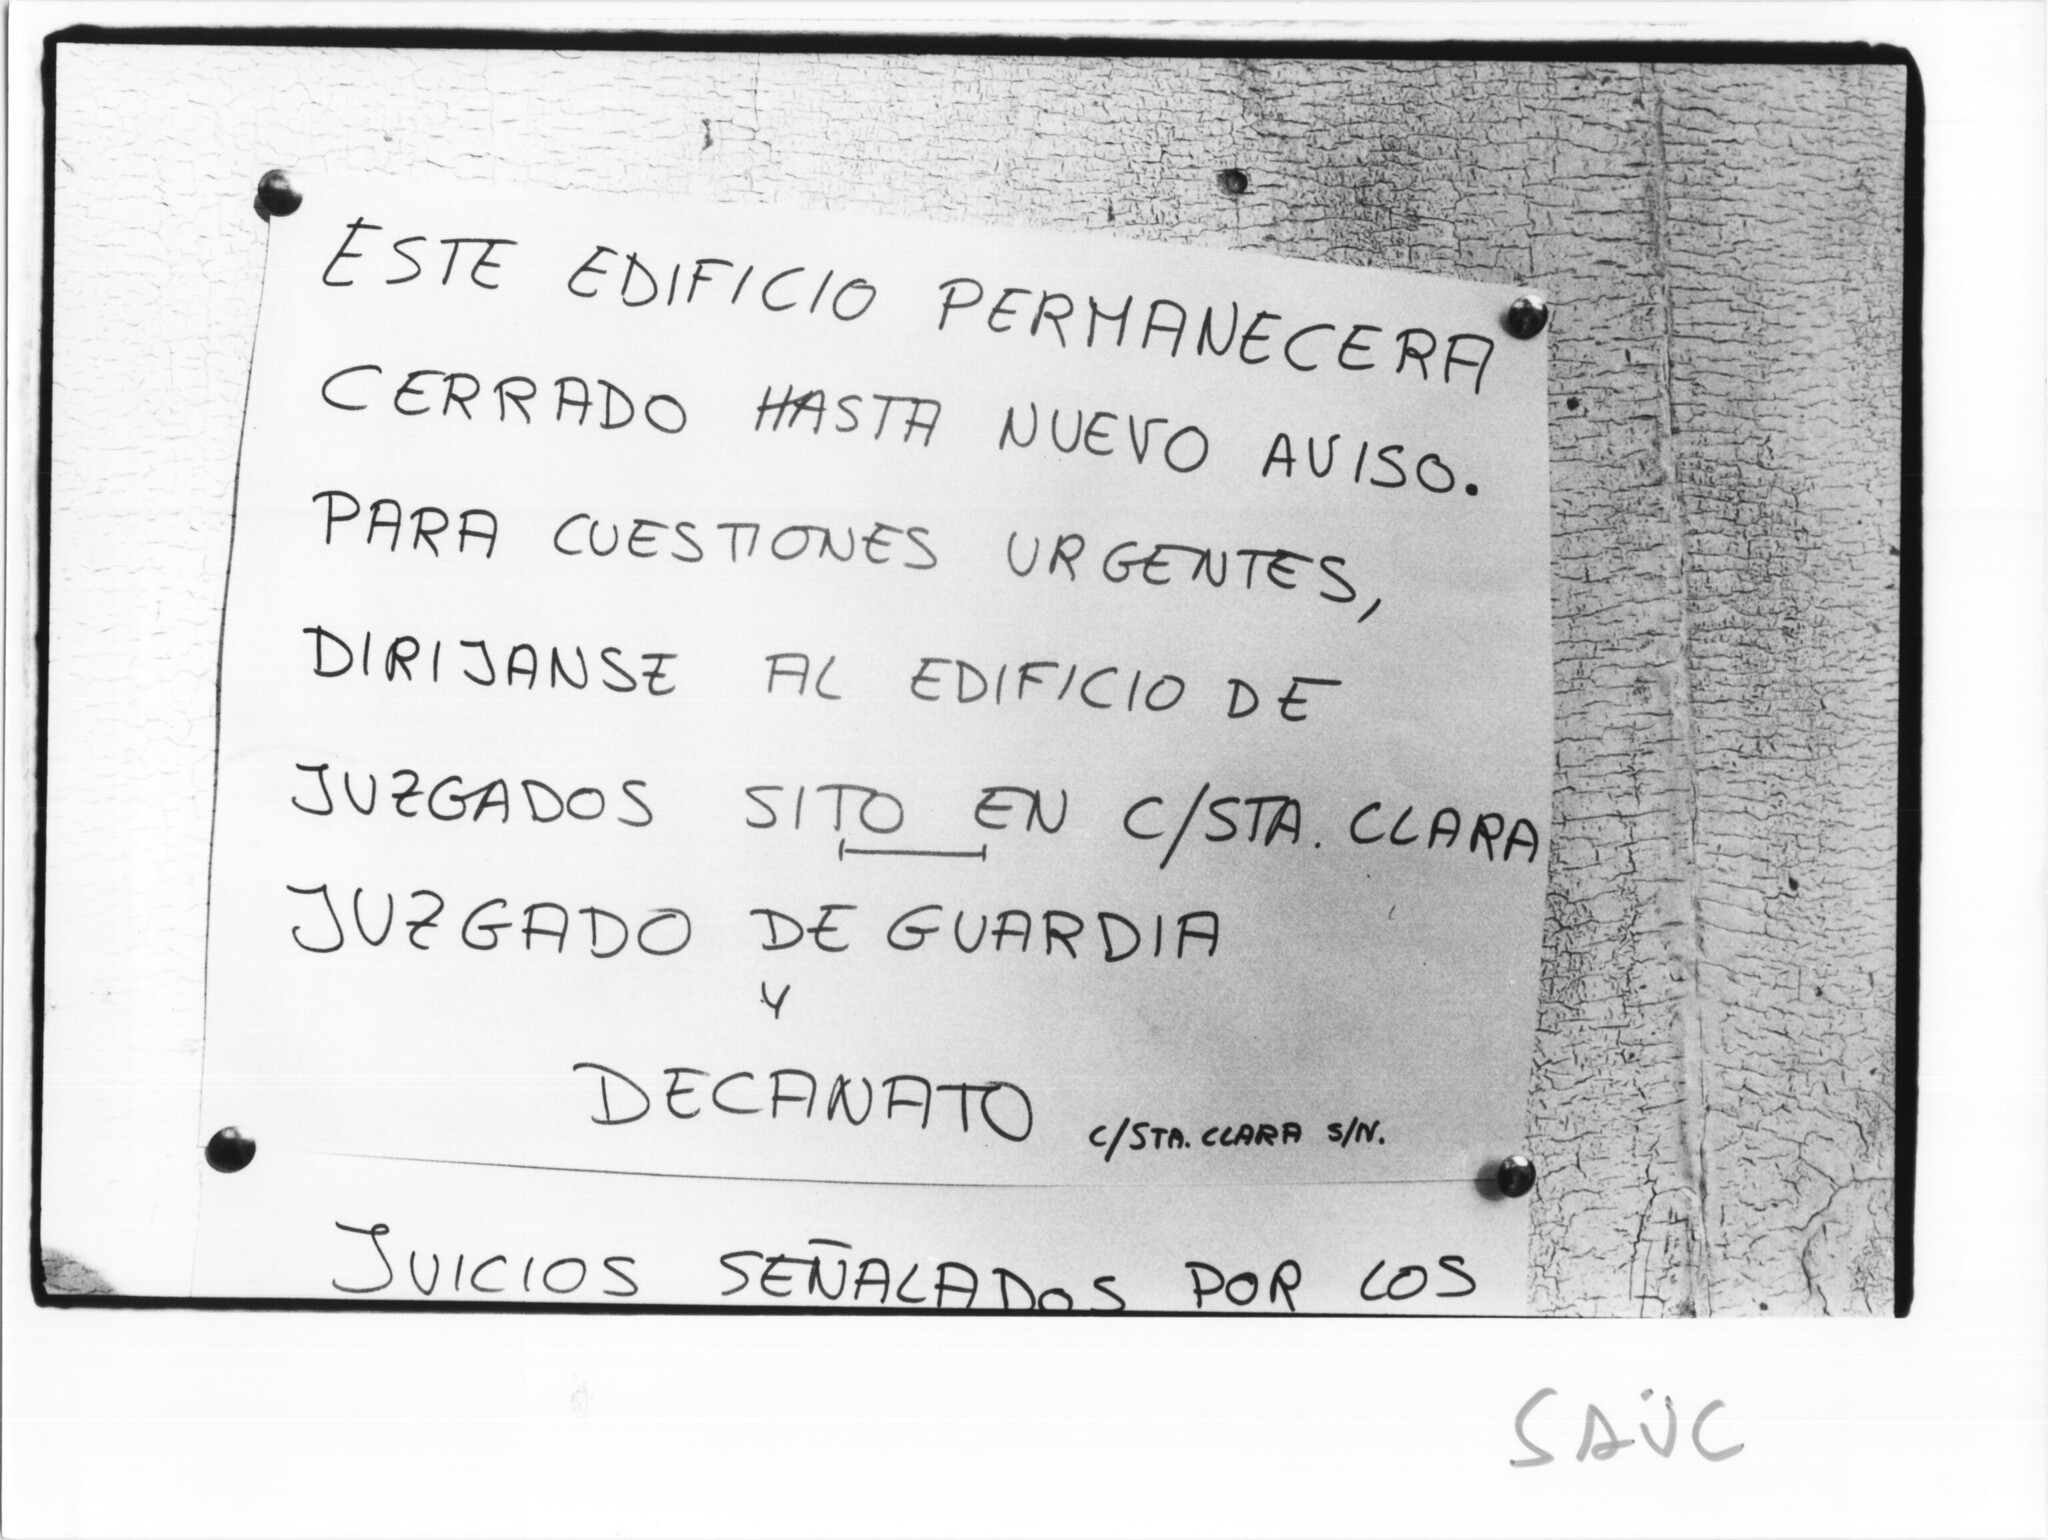 ESTE EDIFICIO PERMANECERA
CERRADO HASTA NUEVO AVISO.
PARA CUESTIONES URGENTES,
DIRIJANSE AL EDIFICIO DE
JUZGADOS SITO EN C/STA. CLARA
JUZGADO DE GUARDIA
Y
DECANATO C/STA. CLARA S/N.
JUICIOS SEÑALADOS POR LOS